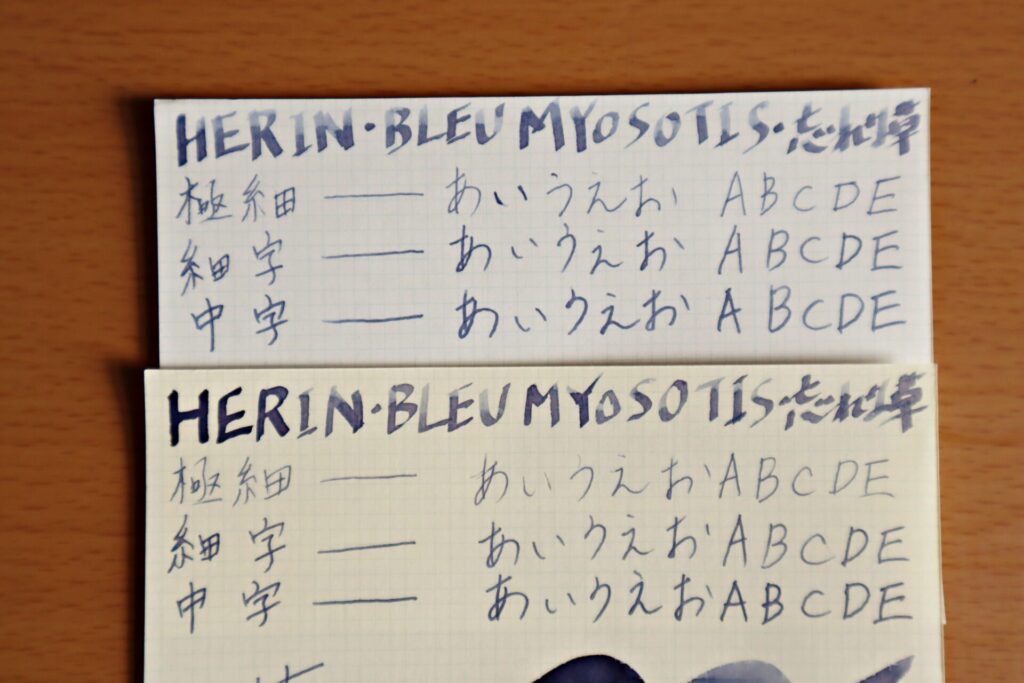 HERIN・BLEU MYOSOTIS・忘れな草
極細 ― あいうえお ABCDE
細字 ― あいうえお ABCDE
中字 ― あいうえお ABCDE
HERIN・BLEU MYOSOTIS・忘れな草
極細 ― あいうえお ABCDE
細字 ― あいうえお ABCDE
中字 ― あいうえお ABCDE